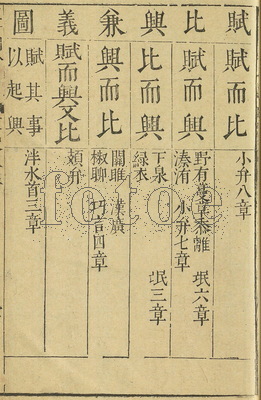 賦比興兼義圖
賦而比
小弁八章
賦而興
野有蔓草 黍離 氓六章
溱洧 小弁七章
比而興
下泉 氓三章
綠衣
興而比
關雎 漢廣
椒聊 巧言四章
賦而興又比
頍弁
賦其事以起興
泮水首三章
fotoe